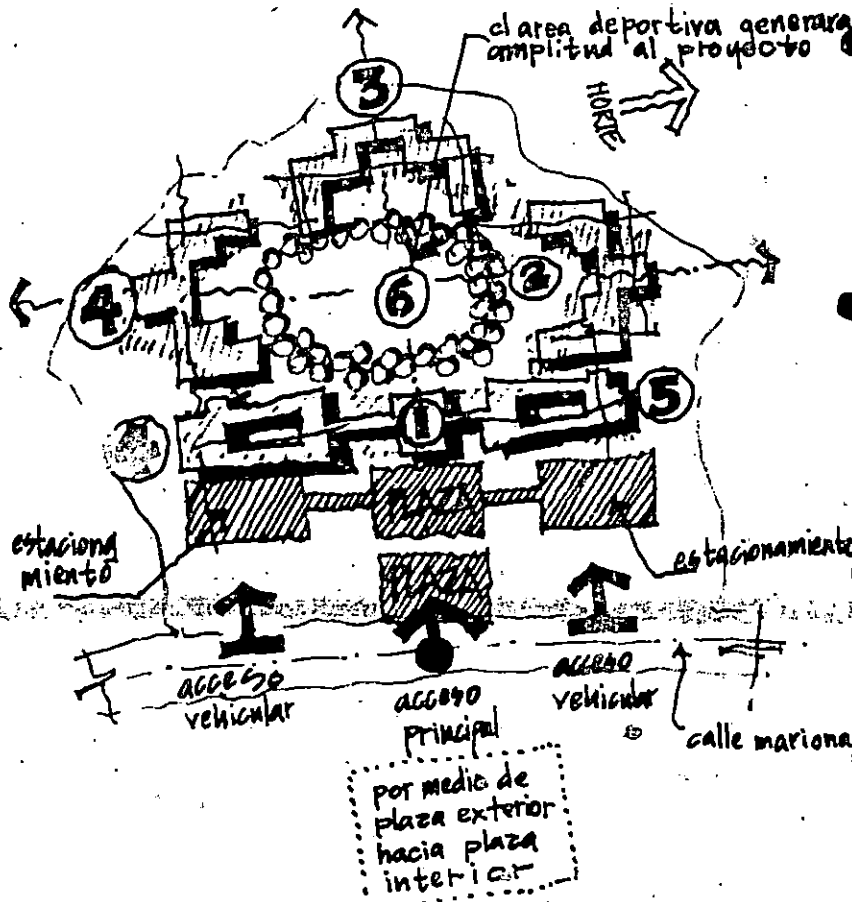 el area deportiva generara
amplitud al proyecto
NORTE
3
4
6
2
1
5
PLAZA
estaciona
miento
estacionamiento
PLAZA
acceso
vehicular
acceso
principal
acceso
vehicular
calle mariona
por medio de
plaza exterior
hacia plaza
interior